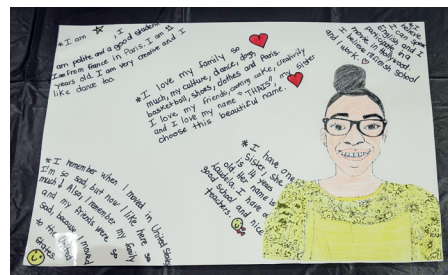 * I am
, I
am polite and a good student.
I am from France in Paris. I am 11
years old. I am very creative and I
like dance too.
* I love my family so
much, my culture, dance, dogs,
basketball, shoes, clothes and Paris.
I love my friends, cooking cake, creativity
and I love my name "THAÏS", my sister
choose this beautiful name.
* I believe
I can speak
English and I
participate in a
movie in Hollywood.
I believe in
school
and work.
* I remember when I moved in United States
I'm so sad, but now I like here so
much! Also, I remember my family
and my friends were so
sad, because I moved
to the United
States.
* I have one
sister, she
is 14 years
old. Her name is
I have
good school and nice
teachers.